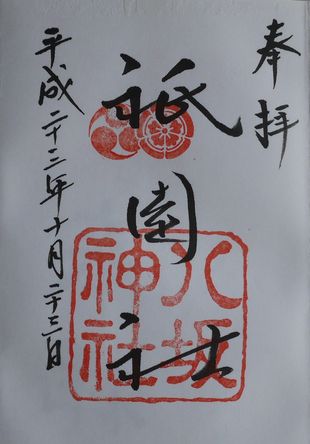 奉拝
祇園社
八坂神社
平成二十三年十月二十三日